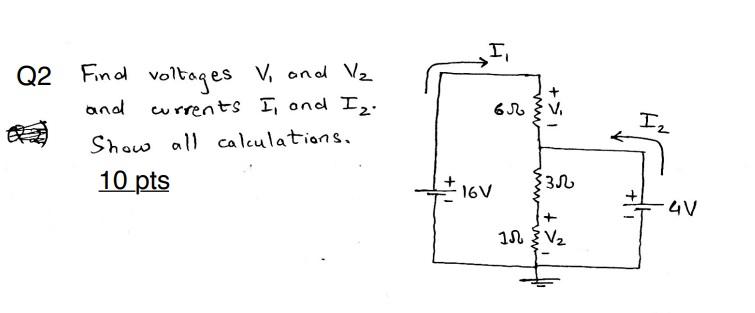 Q2 Find voltages V₁ and V₂
and currents I₁ and I₂.
Show all calculations.
10 pts
I₁
6Ω
+
V₁
-
I₂
+
16V
-
3Ω
+
4V
-
1Ω
+
V₂
-